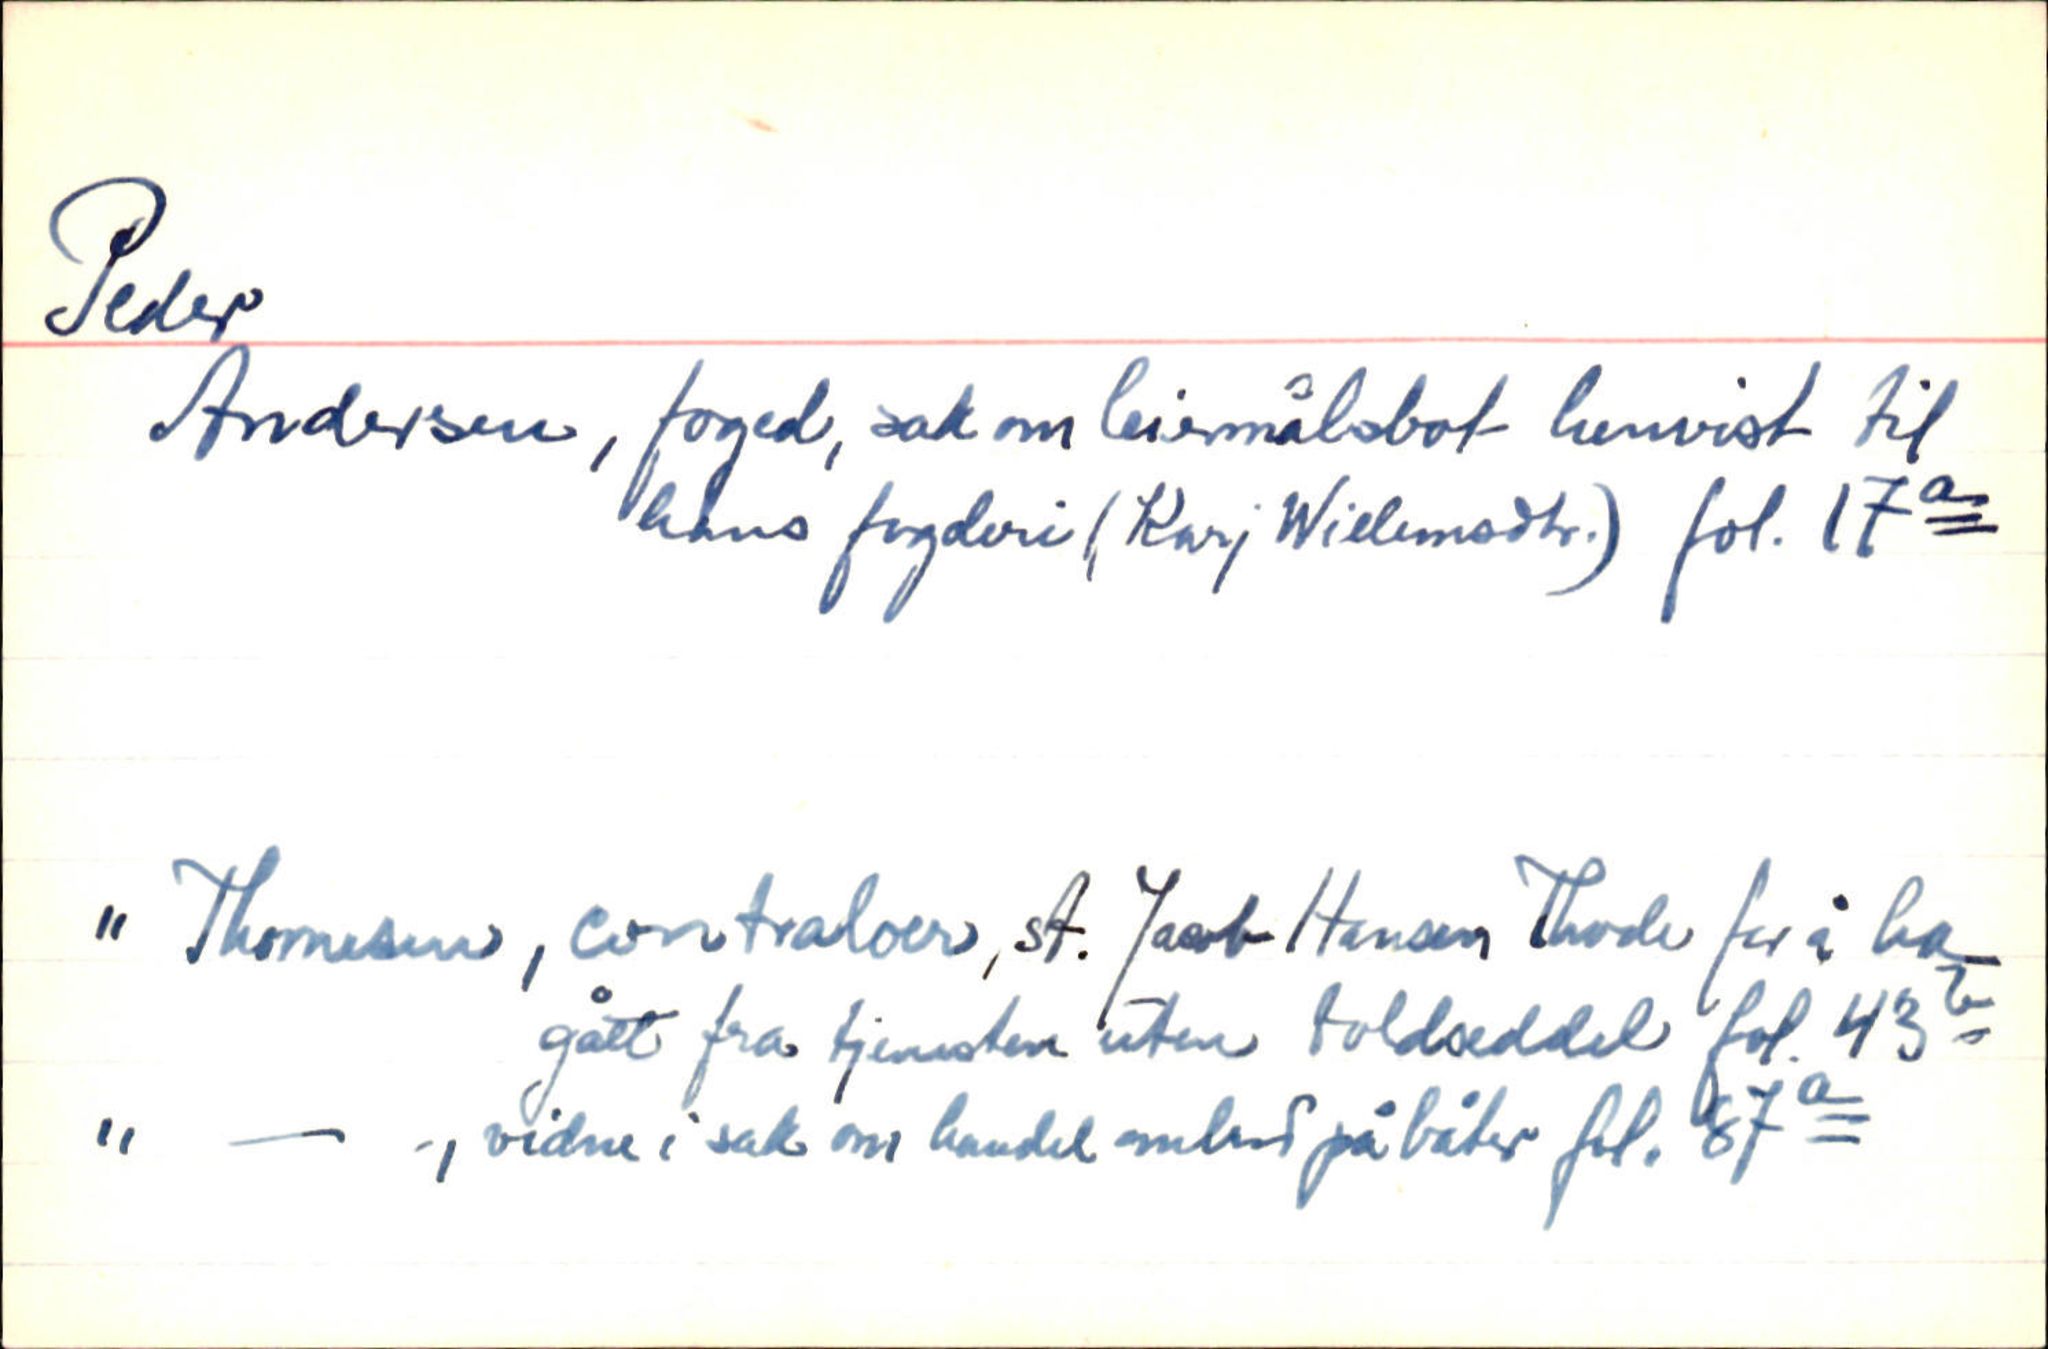 Peder
Andersen, foged, sak om leiermålsbot henvist til
hans fogderi (Karj Wielemsdtr.) fol. 17a
" Thomesen, contraloer, st. Jacob Hansen Thode for å ha
gått fra tjenesten uten toldseddel fol. 43b
" — -, vidne i sak om handel ombord på båter fol. 87a